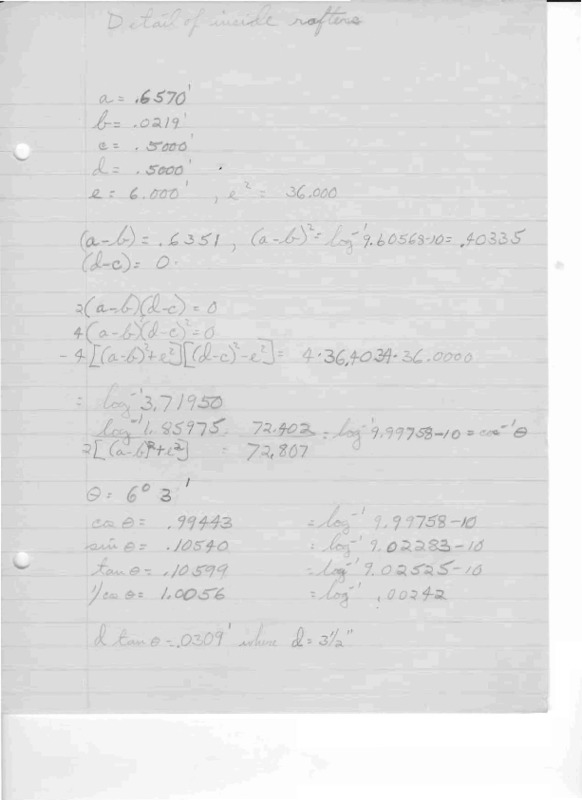 Detail of inside rafters
a = .6570'
b = .0219'
c = .5000'
d = .5000'
e = 6.000' , e² = 36.000
(a-b) = .6351 , (a-b)² = log⁻¹ 9.60568-10 = .40335
(d-c) = 0.
2(a-b)(d-c) = 0
4(a-b)(d-c)² = 0
-4[(a-b)²+e²][(d-c)²-e²] = 4·36.4034·36.0000
= log⁻¹ 3.71950
log⁻¹ 1.85975 = 72.402 = log⁻¹ 9.99758-10 = cos⁻¹ θ
2[(a-b)²+e²] = 72.807
θ = 6° 3'
cos θ = .99443 = log⁻¹ 9.99758-10
sin θ = .10540 = log⁻¹ 9.02283-10
tan θ = .10599 = log⁻¹ 9.02525-10
1/cos θ = 1.0056 = log⁻¹ .00242
d tan θ = .0309' where d = 3½"